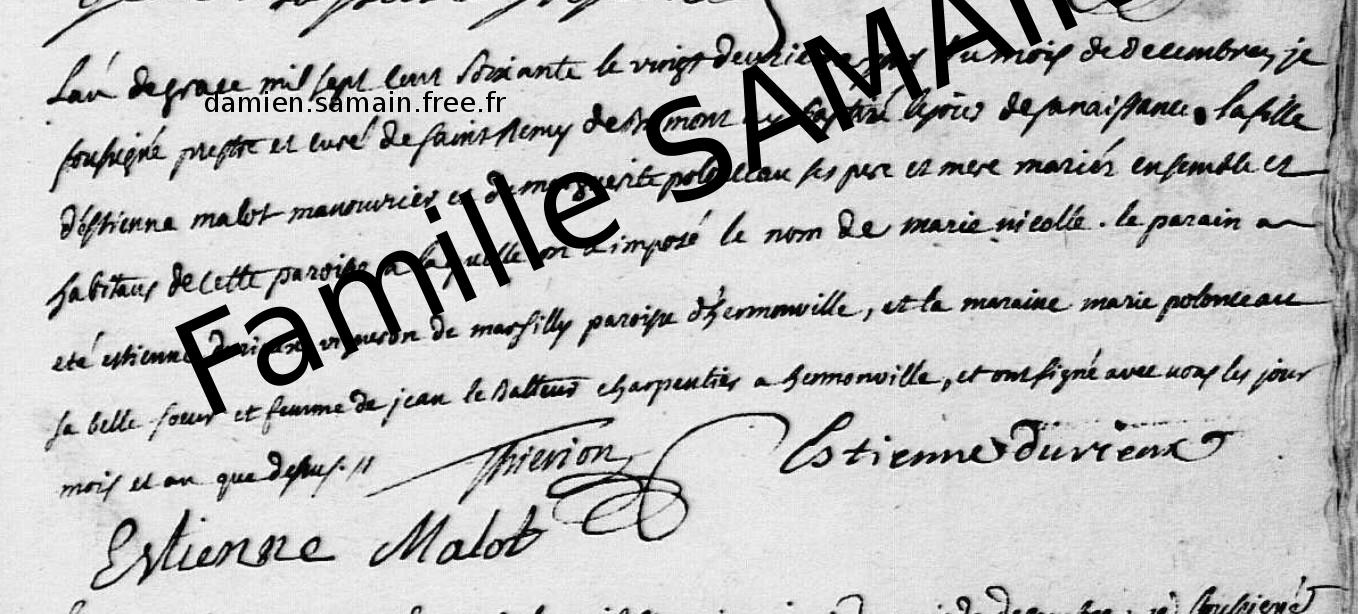 L'an de grace mil sept cent soixante le vingt deuxieme jour du mois de decembre, je
damien.samain.free.fr
soussigné prestre et curé de saint Remy de Brimont ay baptisé le jour de sa naissance la fille
d'éstienne malot manouvrier et de marguerite polonceau ses pere et mere mariés ensemble et
habitans de cette paroisse a laquelle on a imposé le nom de marie nicolle. le parain a
Famille SAMAIN
eté estienne durieux vigneron de marsilly paroisse d'hermonville, et la maraine marie polonceau
sa belle soeur et femme de jean le Batteux charpentier a hermonville, et ont signé avec nous les jour
mois et an que dessus //
Thierion
Estienne durieux
Estienne Malot